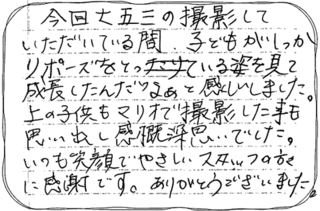 今回七五三の撮影して
いただいている間、子どもがしっか
りポーズをとっている姿を見て
成長したんだなぁと感じしました。
上の子供もマリオで撮影した事も
思い出し感慨深思いでした。
いつも笑顔でやさしいスタッフの方々
に感謝です。ありがとうございました。